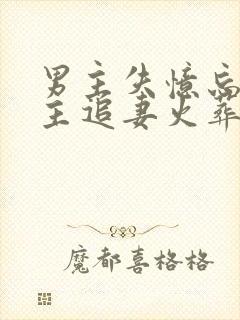 男主失憶忘
主追妻火葬
魔都喜格格